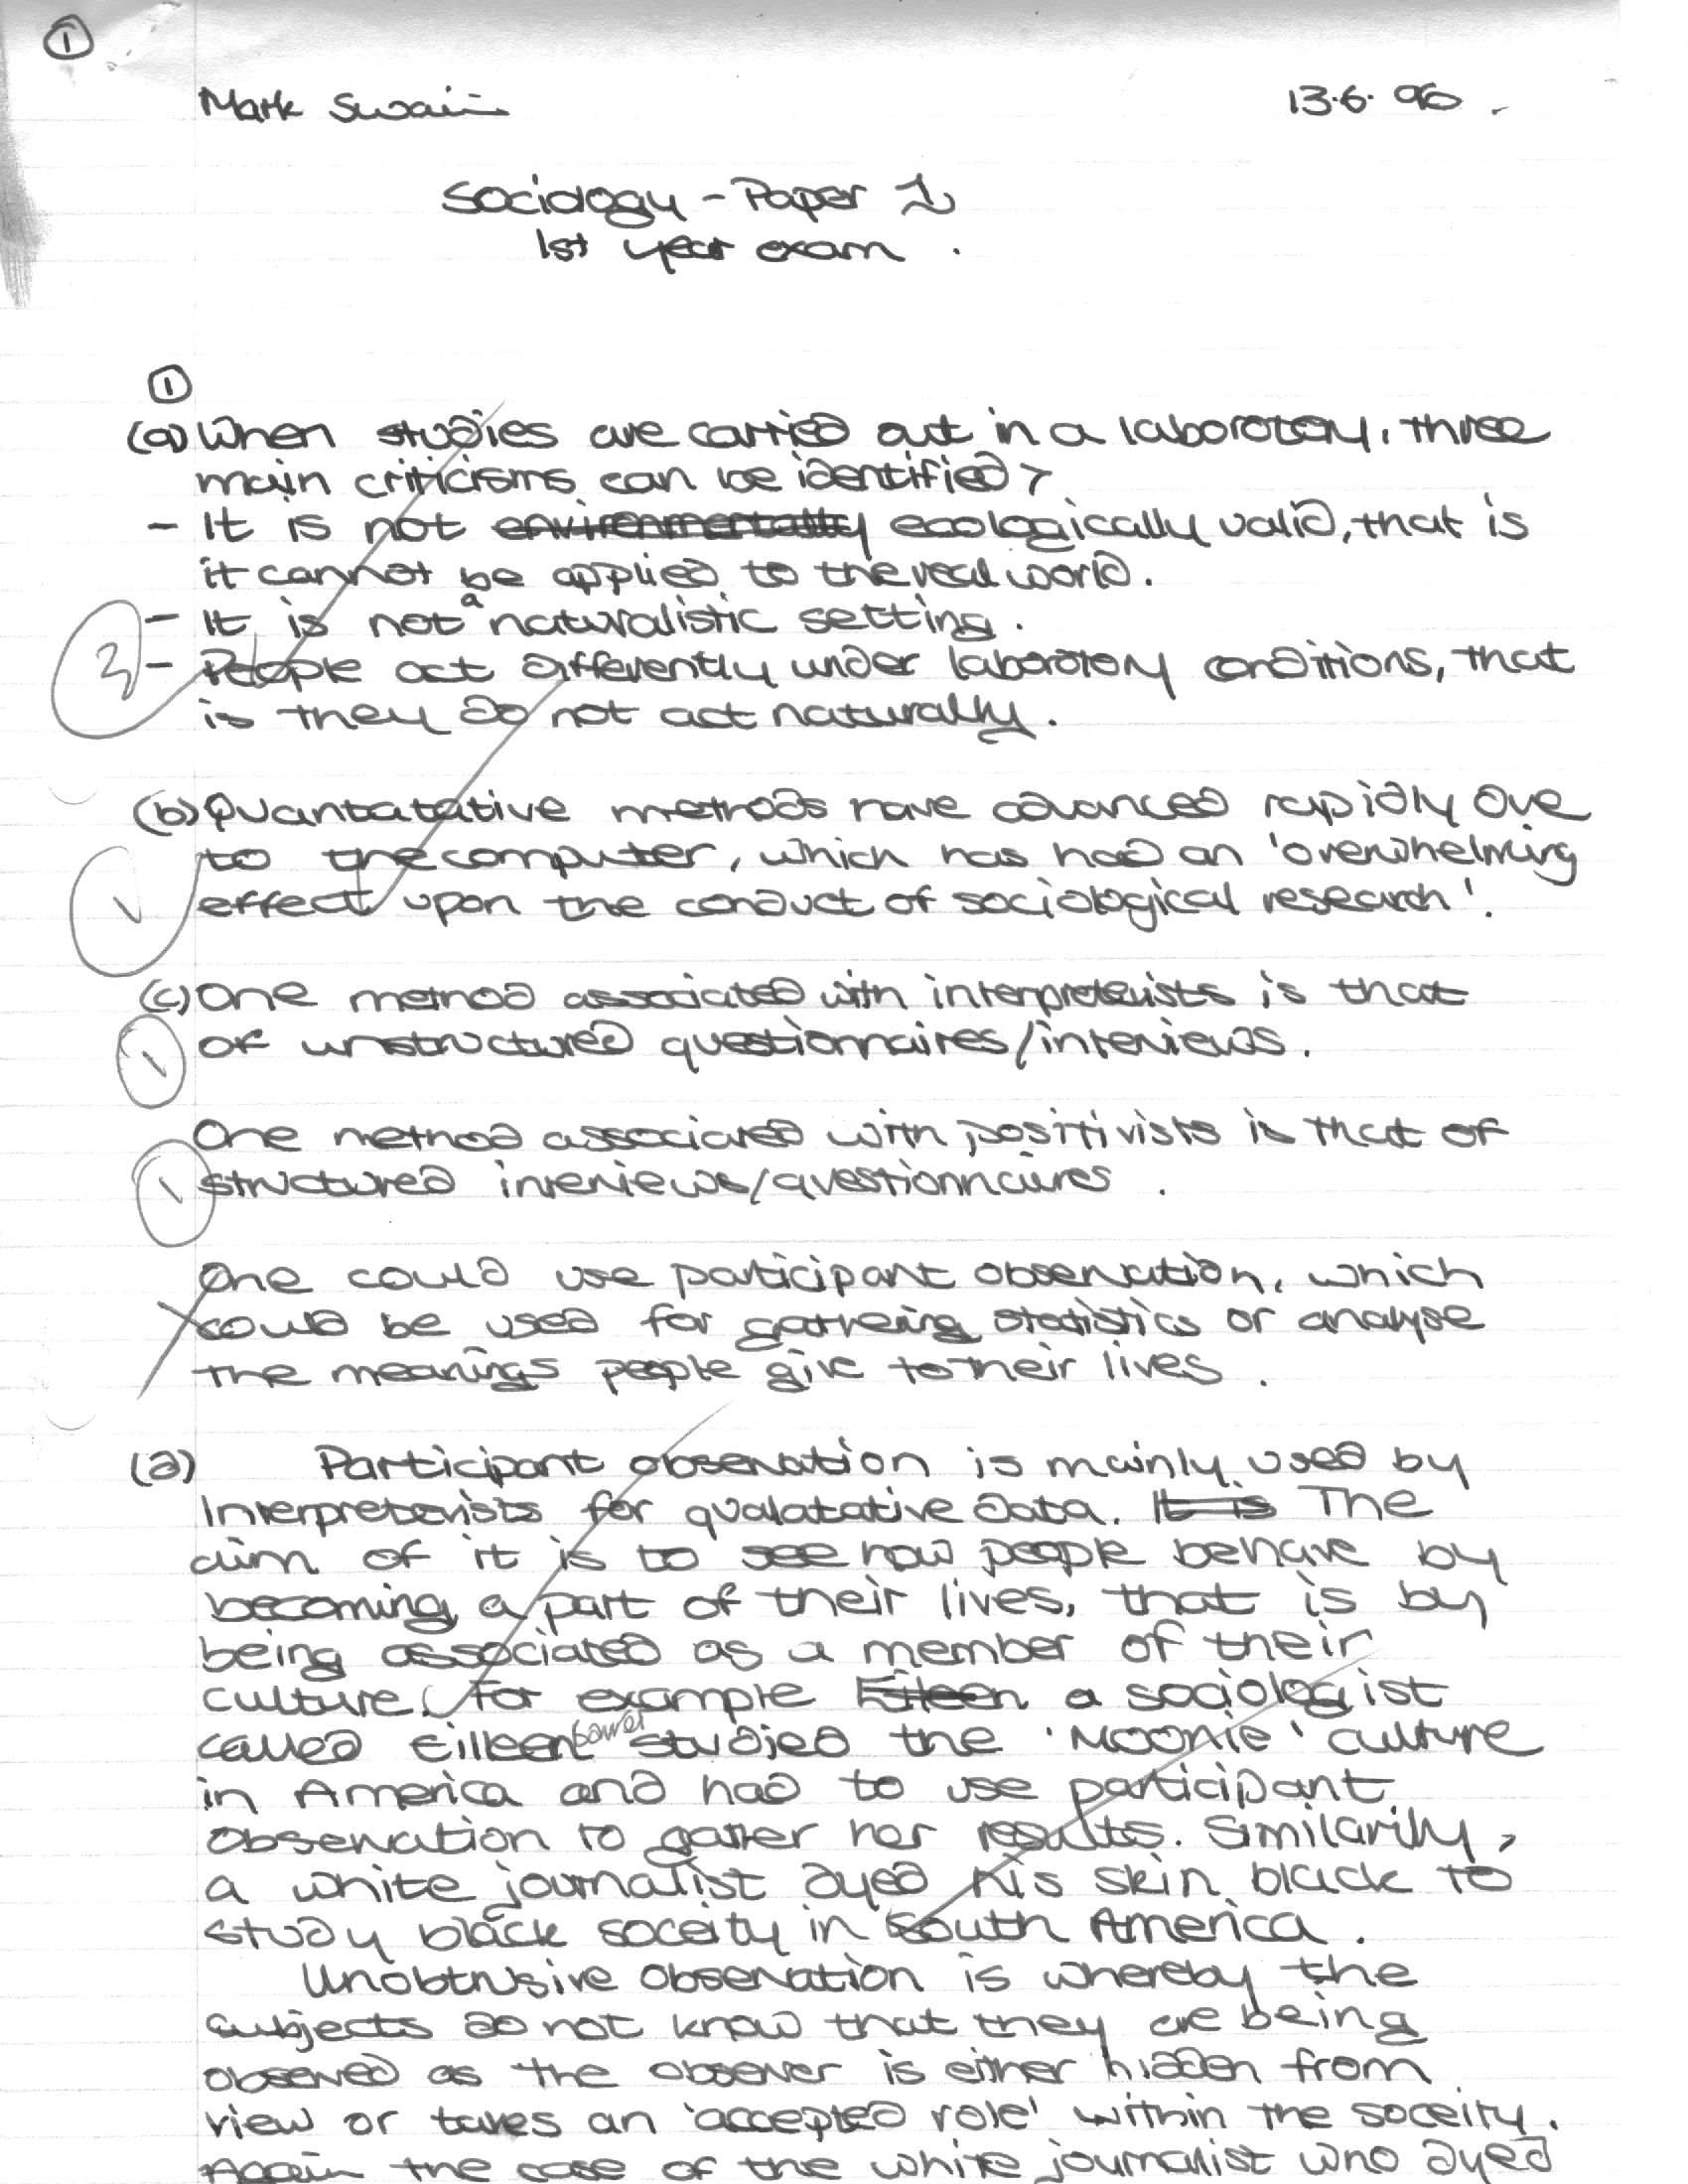 1
Mark Swain 13.6.96.
Sociology - Paper 1
1st year exam.
1
(a) When studies are carried out in a laborotory, three
main criticisms can be identified >
- It is not environmentally ecologically valid, that is
it cannot be applied to the real world.
- It is not a naturalistic setting.
3 - People act differently under laborotory conditions, that
is they do not act naturally.
(b) Quantatative methods have advanced rapidly due
to the computer, which has had an 'overwhelming
effect upon the conduct of sociological research'.
(c) One method associated with interpretevists is that
of unstructured questionnaires/interviews.
One method associated with positivists is that of
structured interviews/questionnaires.
One could use participant observation, which
could be used for gathering statistics or analyse
the meanings people give to their lives.
(d) Participant observation is mainly used by
Interpretevists for qualatative data. It is The
aim of it is to see how people behave by
becoming a part of their lives, that is by
being associated as a member of their
culture. For example Eileen a sociologist
called Eilleen studied the 'Moonie' culture
in America and had to use participant
observation to gather her results. Similarily,
a white journalist dyed his skin black to
study black soceity in South America.
Unobtrusive observation is whereby the
subjects do not know that they are being
observed as the observer is either hidden from
view or takes an 'accepted role' within the soceity.
Again the case of the white journalist who dyed